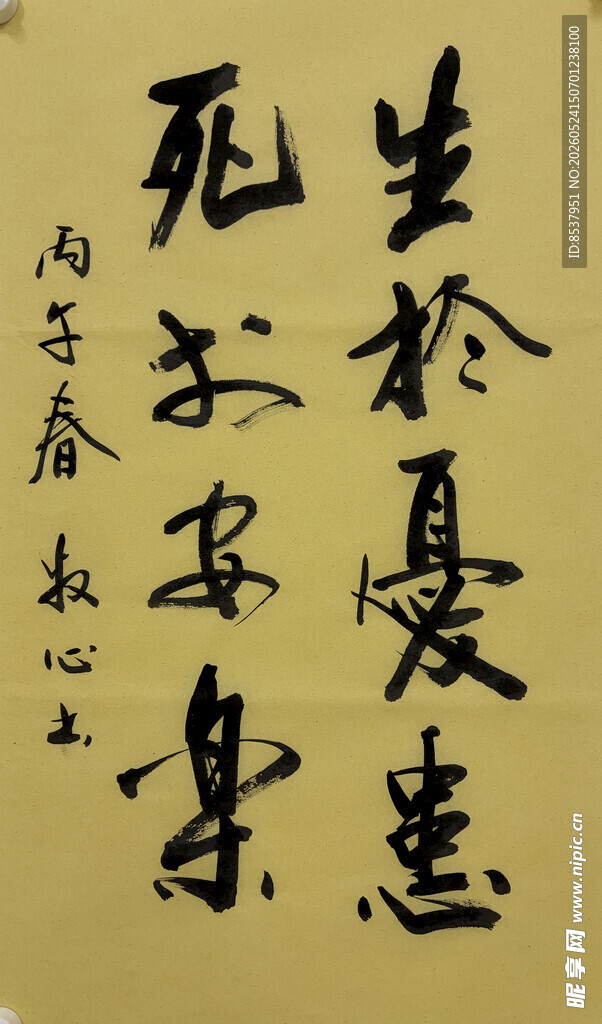 生於憂患
死於安樂
丙午春 牧心书
ID:8537951 NO:20260524150701238100
昵享网 www.nipic.cn